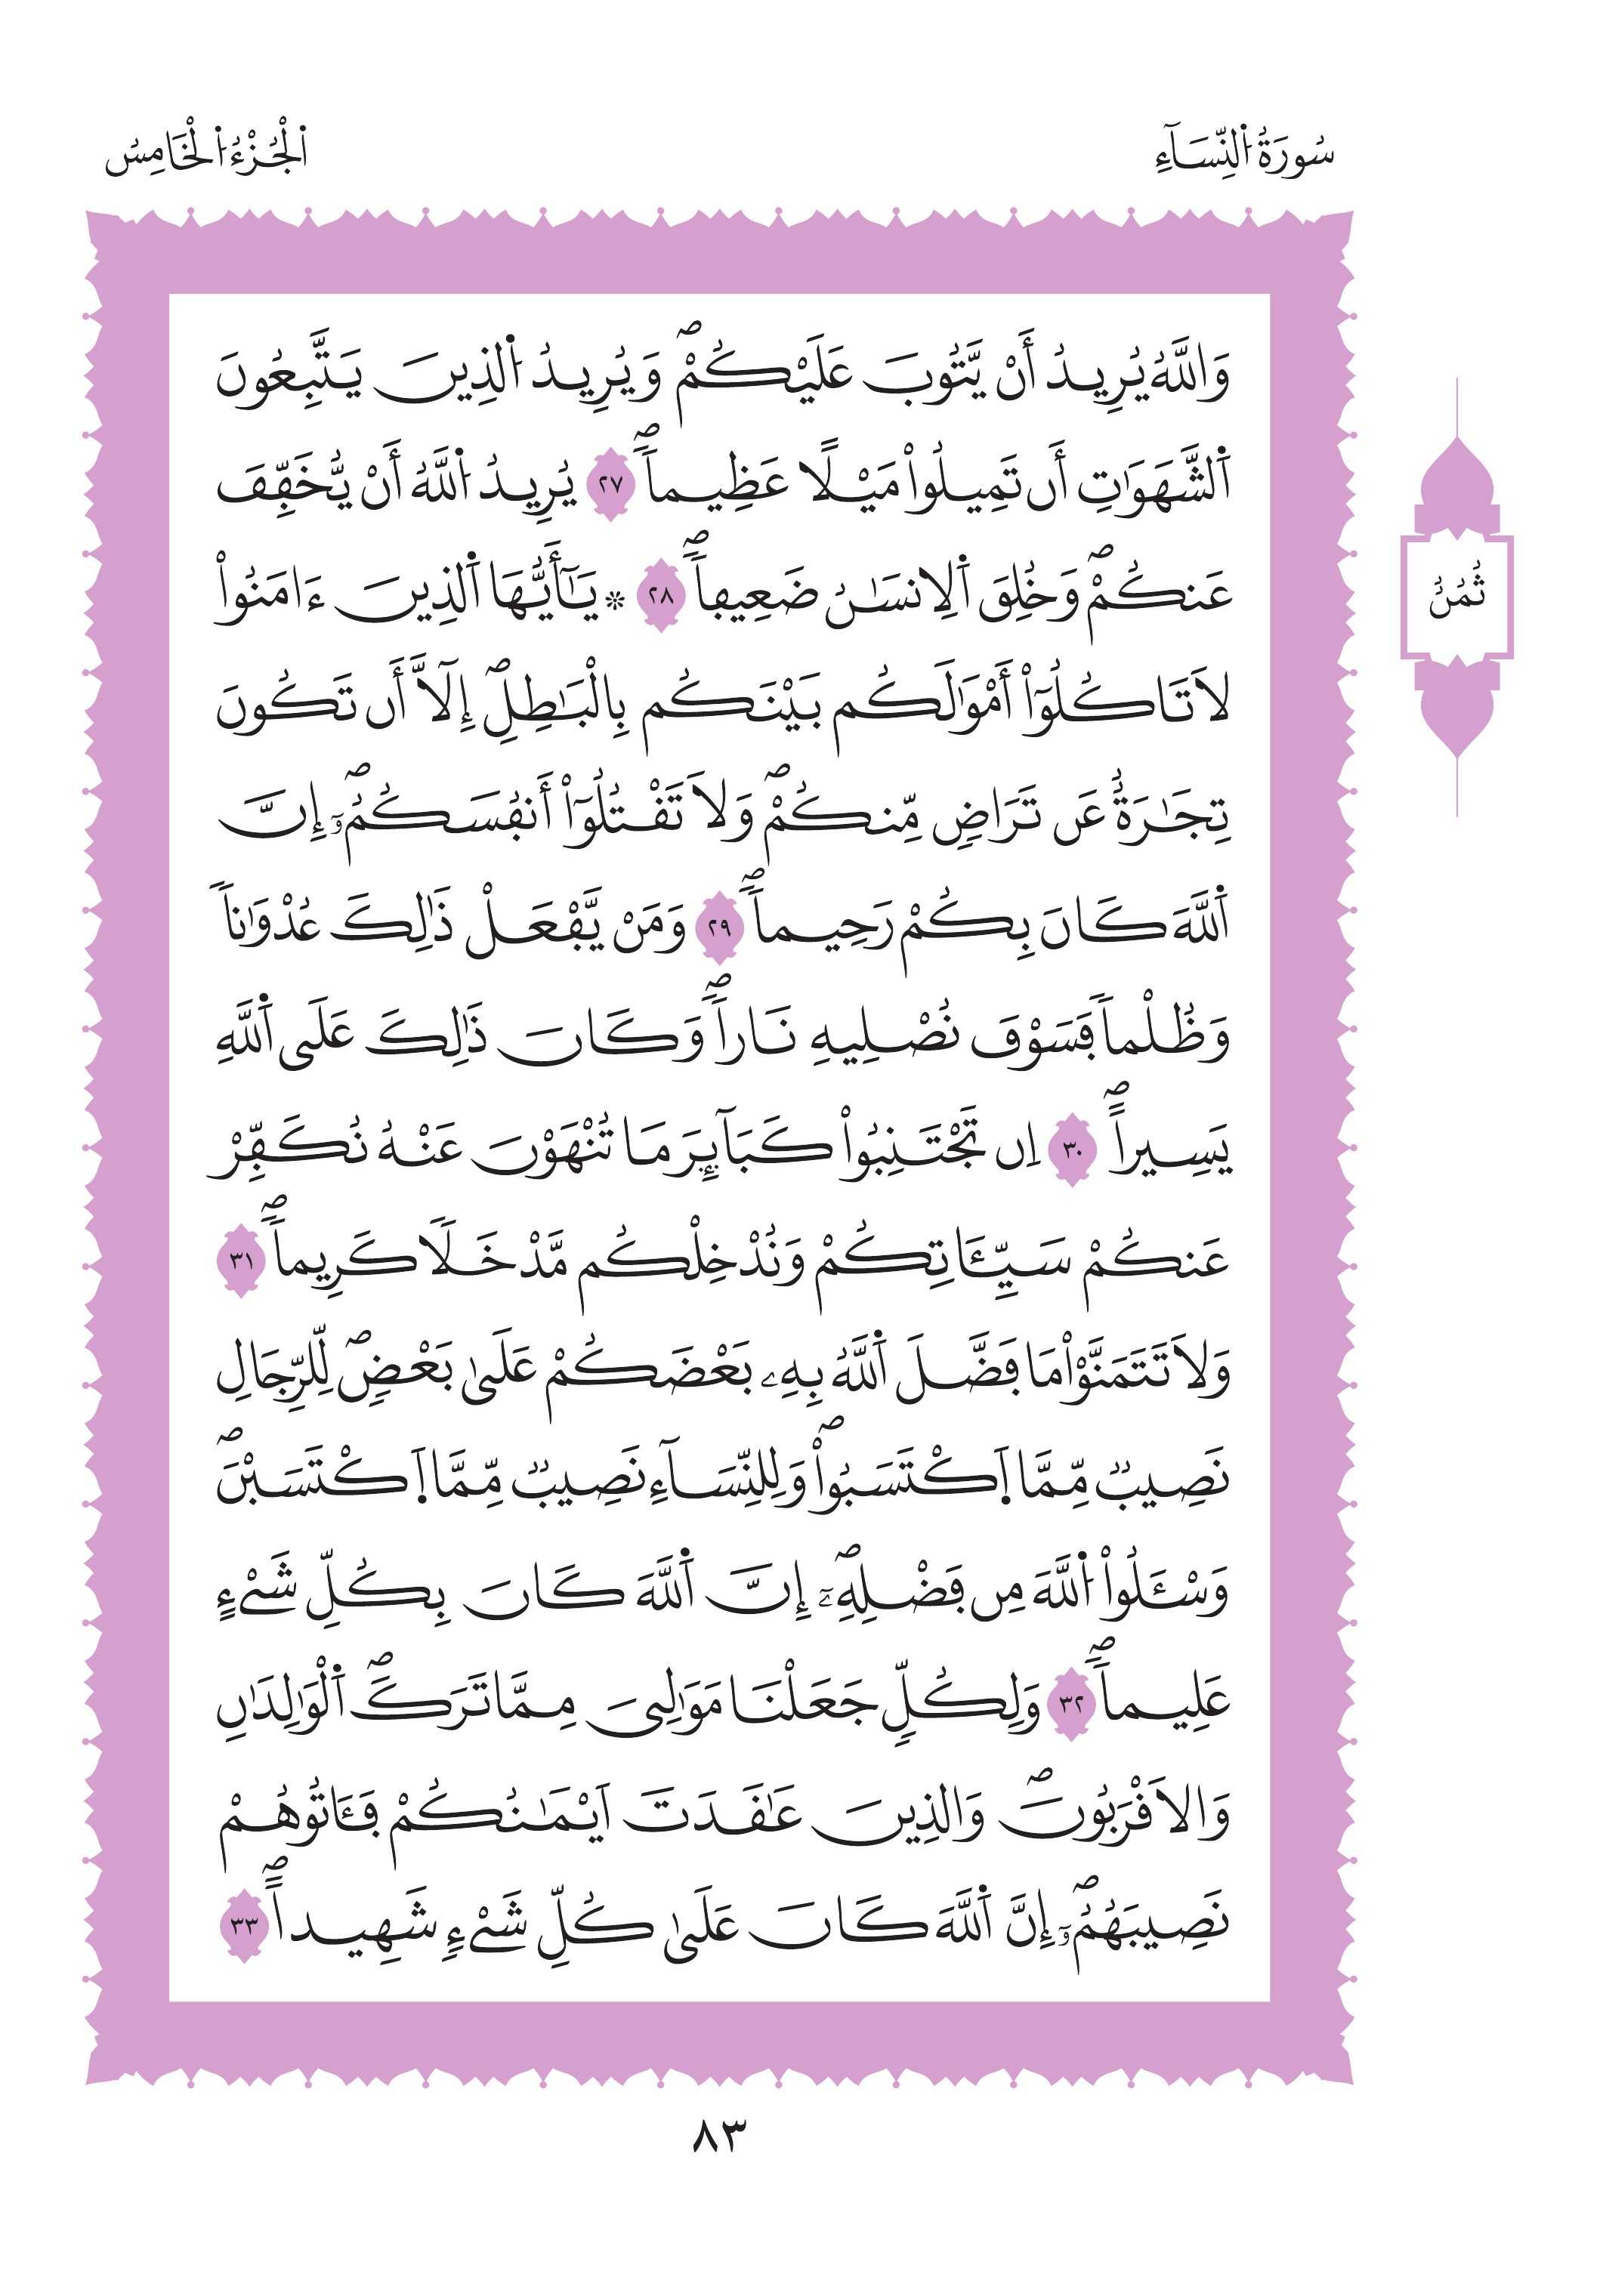 سُورَةُ اُ۬لنِّسَآءِ
اُ۬لْجُزْءُ اُ۬لْخَامِسُ
وَاللَّهُ يُرِيدُ أَنْ يَّتُوبَ عَلَيْكُمْۖ وَيُرِيدُ اُ۬لذِينَ يَتَّبِعُونَ
اَ۬لشَّهَوَٰتِ أَن تَمِيلُواْ مَيْلًا عَظِيماًۖ ٢٧ يُرِيدُ اُ۬للَّهُ أَنْ يُّخَفِّفَ
عَنكُمْۖ وَخُلِقَ اَ۬لِانسَٰنُ ضَعِيفاًۖ ٢٨ ۞ يَٰٓأَيُّهَا اَ۬لذِينَ ءَامَنُواْ
لَا تَاكُلُوٓاْ أَمْوَٰلَكُم بَيْنَكُم بِالْبَٰطِلِۖ إِلَّآ أَن تَكُونَ
تِجَٰرَةٌ عَن تَرَاضٖ مِّنكُمْۖ وَلَا تَقْتُلُوٓاْ أَنفُسَكُمُۥٓۖ إِنَّ
اَ۬للَّهَ كَانَ بِكُمْ رَحِيماًۖ ٢٩ وَمَنْ يَّفْعَلْ ذَٰلِكَ عُدْوَٰناً
وَظُلْماً فَسَوْفَ نُصْلِيهِ نَاراًۖ وَكَانَ ذَٰلِكَ عَلَى اَ۬للَّهِ
يَسِيراًۖ ٣٠ اِن تَجْتَنِبُواْ كَبَآئِرَ مَا تُنْهَوْنَ عَنْهُ نُكَفِّرْ
عَنكُمْ سَيِّـَٔاتِكُمْ وَنُدْخِلْكُم مَّدْخَلًا كَرِيماًۖ ٣١
وَلَا تَتَمَنَّوْاْ مَا فَضَّلَ اَ۬للَّهُ بِهِۦ بَعْضَكُمْ عَلَىٰ بَعْضٖۖ لِّلرِّجَالِ
نَصِيبٌ مِّمَّا اَ۪كْتَسَبُواْۖ وَلِلنِّسَآءِ نَصِيبٌ مِّمَّا اَ۪كْتَسَبْنَۖ
وَسْـَٔلُواْ اُ۬للَّهَ مِن فَضْلِهِۦٓۖ إِنَّ اَ۬للَّهَ كَانَ بِكُلِّ شَےْءٍ
عَلِيماًۖ ٣٢ وَلِكُلّٖ جَعَلْنَا مَوَٰلِيَ مِمَّا تَرَكَۖ اَ۬لْوَٰلِدَٰنِ
وَالَاقْرَبُونَۖ وَالذِينَ عَٰقَدَتَ اَيْمَٰنُكُمْ فَـَٔاتُوهُمْ
نَصِيبَهُمُۥٓۖ إِنَّ اَ۬للَّهَ كَانَ عَلَىٰ كُلِّ شَےْءٍ شَهِيداًۖ ٣٣
ثُمُنُ
٨٣